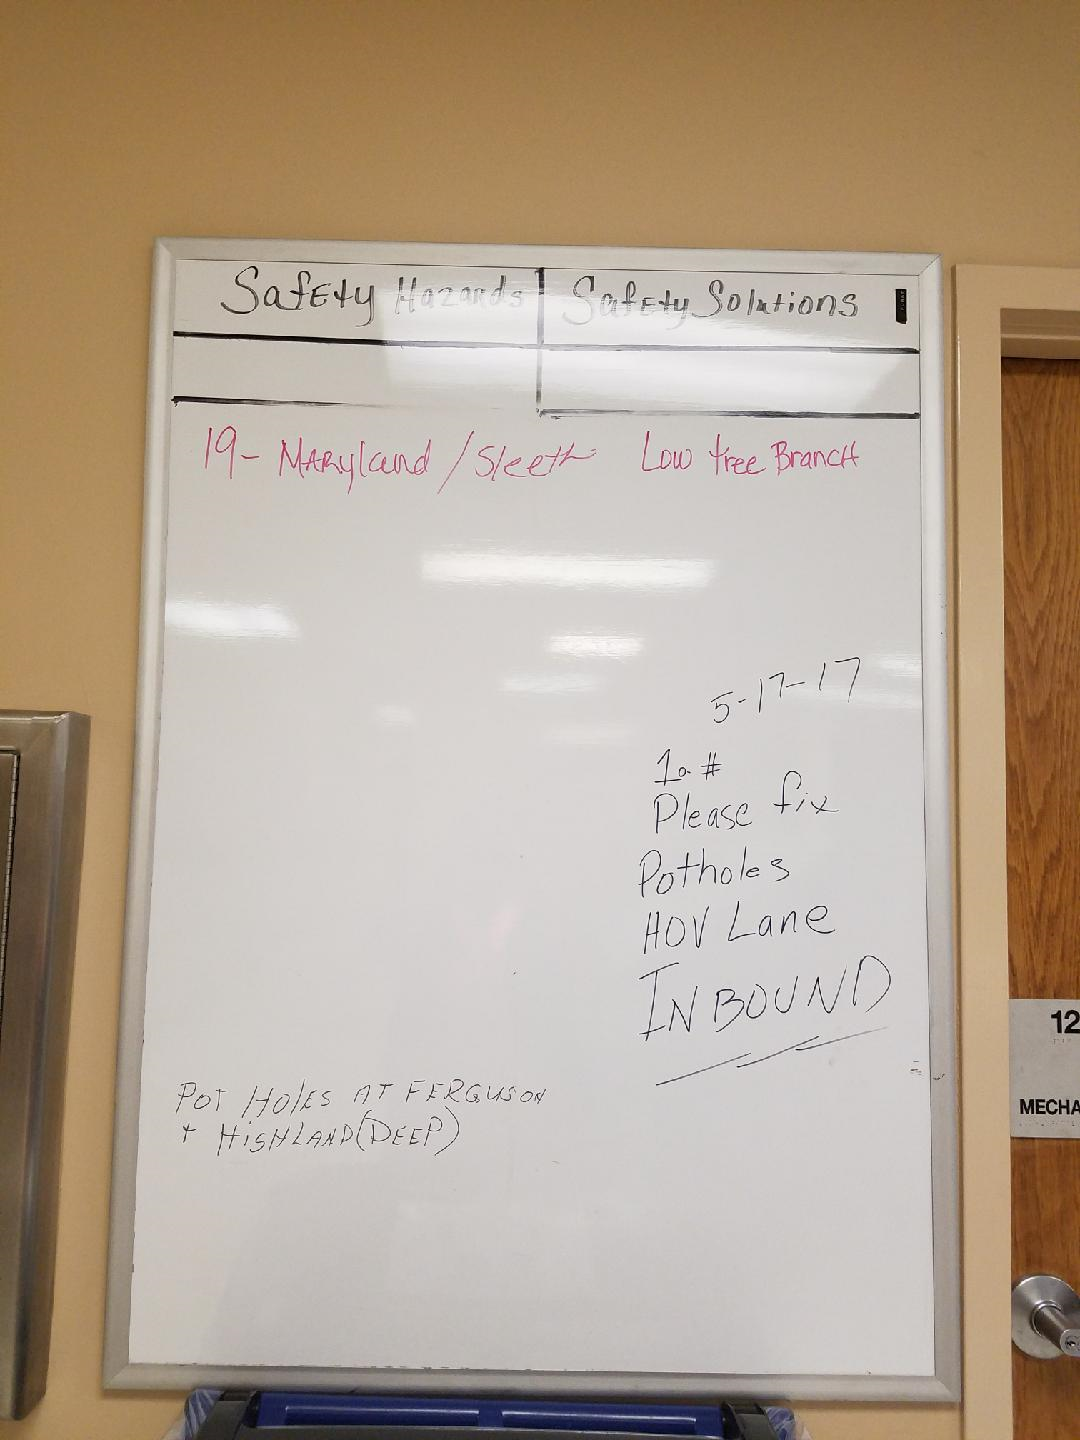 SafEty Hazards
SafEty Solutions
19- MARyland / Sleeth
Low tree BrancH
5-17-17
Please fix
Potholes
HOV Lane
INBOUND
POT HOLES AT FERGUSON
+ HiGHLAND (DEEP)
12
MECHA